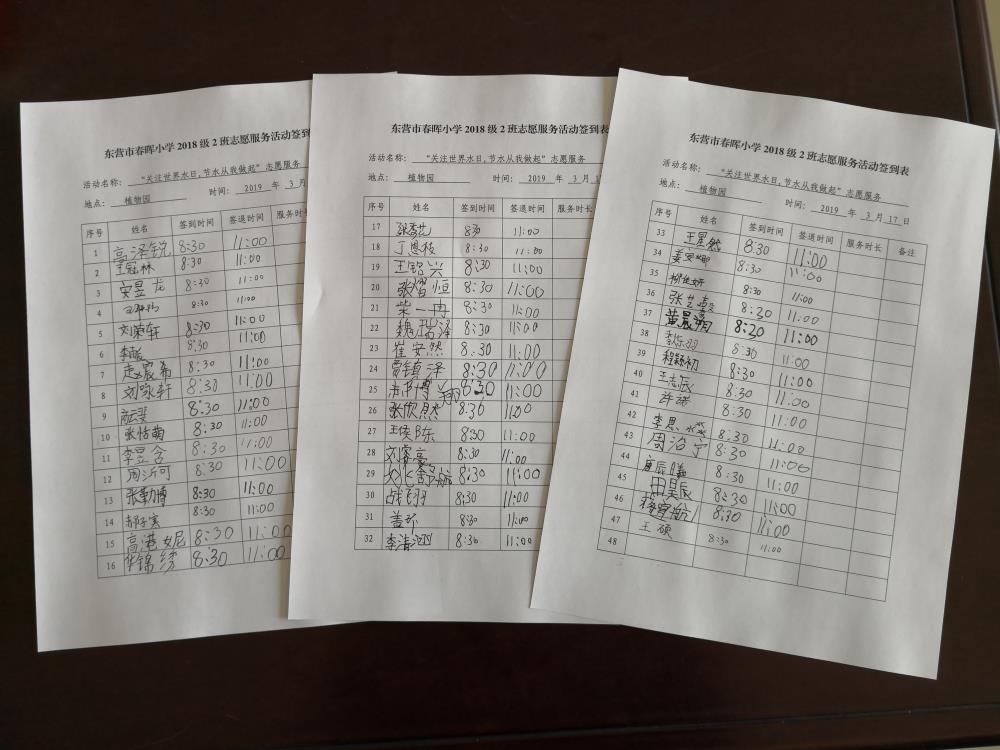 东营市春晖小学 2018 级 2 班志愿服务活动签到
活动名称： “关注世界水日,节水从我做起”志愿服务
地点： 植物园 时间： 2019 年 3 月
序号 姓名 签到时间 签退时间 服务时
1 高泽锐 8:30 11:00
2 王冠林 8:30 11:00
3 安昱龙 8:30 11:00
4 8:30 11:00
5 刘荣轩 8:30 11:00
6 8:30 11:00
7 赵宸希 8:30 11:00
8 刘咏轩 8:30 11:00
9 8:30 11:00
10 张恬萌 8:30 11:00
11 李昱含 8:30 11:00
12 周沂可 8:30 11:00
13 张勤博 8:30 11:00
14 郝子寒 8:30 11:00
15 高港妮 8:30 11:00
16 华锦绣 8:30 11:00
东营市春晖小学 2018 级 2 班志愿服务活动签到表
活动名称： “关注世界水日,节水从我做起”志愿服务
地点： 植物园 时间： 2019 年 3 月 1
序号 姓名 签到时间 签退时间 服务时长
17 8:30 11:00
18 丁恩枝 8:30 11:00
19 王铭兴 8:30 11:00
20 张耀恒 8:30 11:00
21 柴一冉 8:30 11:00
22 魏瑞泽 8:30 11:00
23 崔安然 8:30 11:00
24 贾镇泽 8:30 11:00
25 8:30 11:00
26 张欣然 8:30 11:00
27 8:30 11:00
28 刘睿豪 8:30 11:00
29 8:30 11:00
30 战翎羽 8:30 11:00
31 盖环 8:30 11:00
32 李清涵 8:30 11:00
东营市春晖小学 2018 级 2 班志愿服务活动签到表
活动名称： “关注世界水日,节水从我做起”志愿服务
地点： 植物园 时间： 2019 年 3 月 17 日
序号 姓名 签到时间 签退时间 服务时长 备注
33 王星然 8:30 11:00
34 姜安娜 8:30 11:00
35 8:30 11:00
36 张艺真 8:30 11:00
37 黄晨朔 8:20 11:00
38 李乐羽 8:30 11:00
39 程颖初 8:30 11:00
40 王志辰 8:30 11:00
41 许诺 8:30 11:00
42 李思燚 8:30 11:00
43 周治宁 8:30 11:00
44 唐辰曦 8:30 11:00
45 田昊辰 8:30 11:00
46 杨睿航 8:30 11:00
47 王硕 8:30 11:00
48